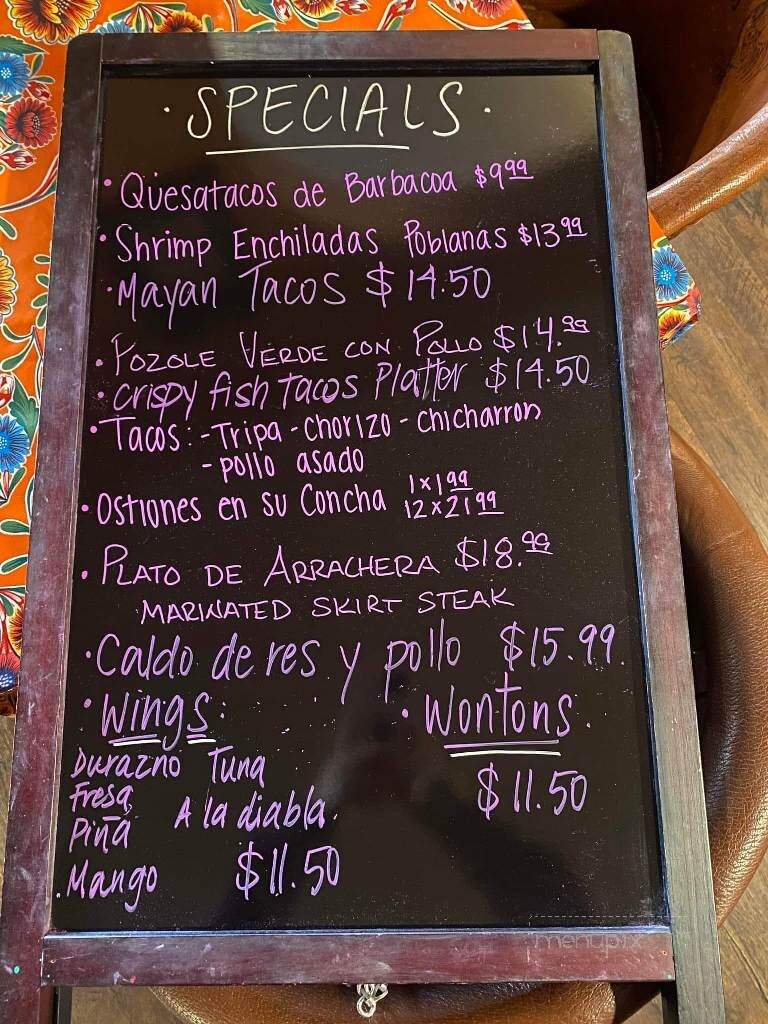 · SPECIALS ·
· Quesatacos de Barbacoa $9.99
· Shrimp Enchiladas Poblanas $13.99
· Mayan Tacos $14.50
· POZOLE VERDE CON POLLO $14.99
· Crispy fish tacos Platter $14.50
· Tacos: - Tripa - chorizo - chicharron
- pollo asado
· Ostiones en su Concha 1x1.99
12x21.99
· PLATO DE ARRACHERA $18.99
MARINATED SKIRT STEAK
· Caldo de res y pollo $15.99.
· Wings: · Wontons.
Durazno Tuna
Fresa
$11.50
Piña A la diabla.
. Mango $11.50
menupix